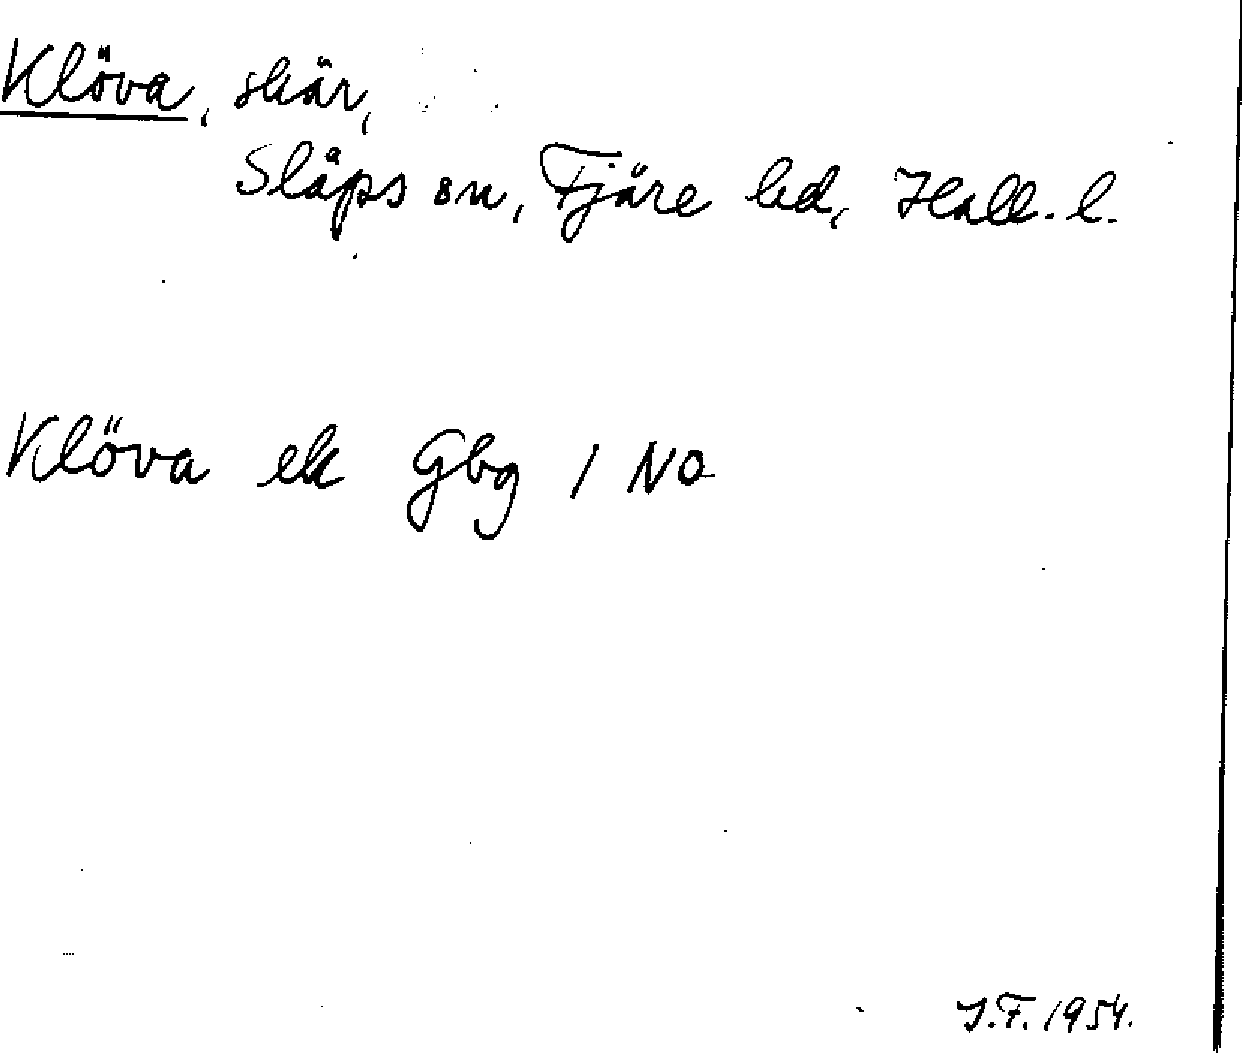 Klöva, skär,
Släps sn, Fjäre hd, Hall. l.
Klöva ek Gbg 1 NO
J.F. 1954.